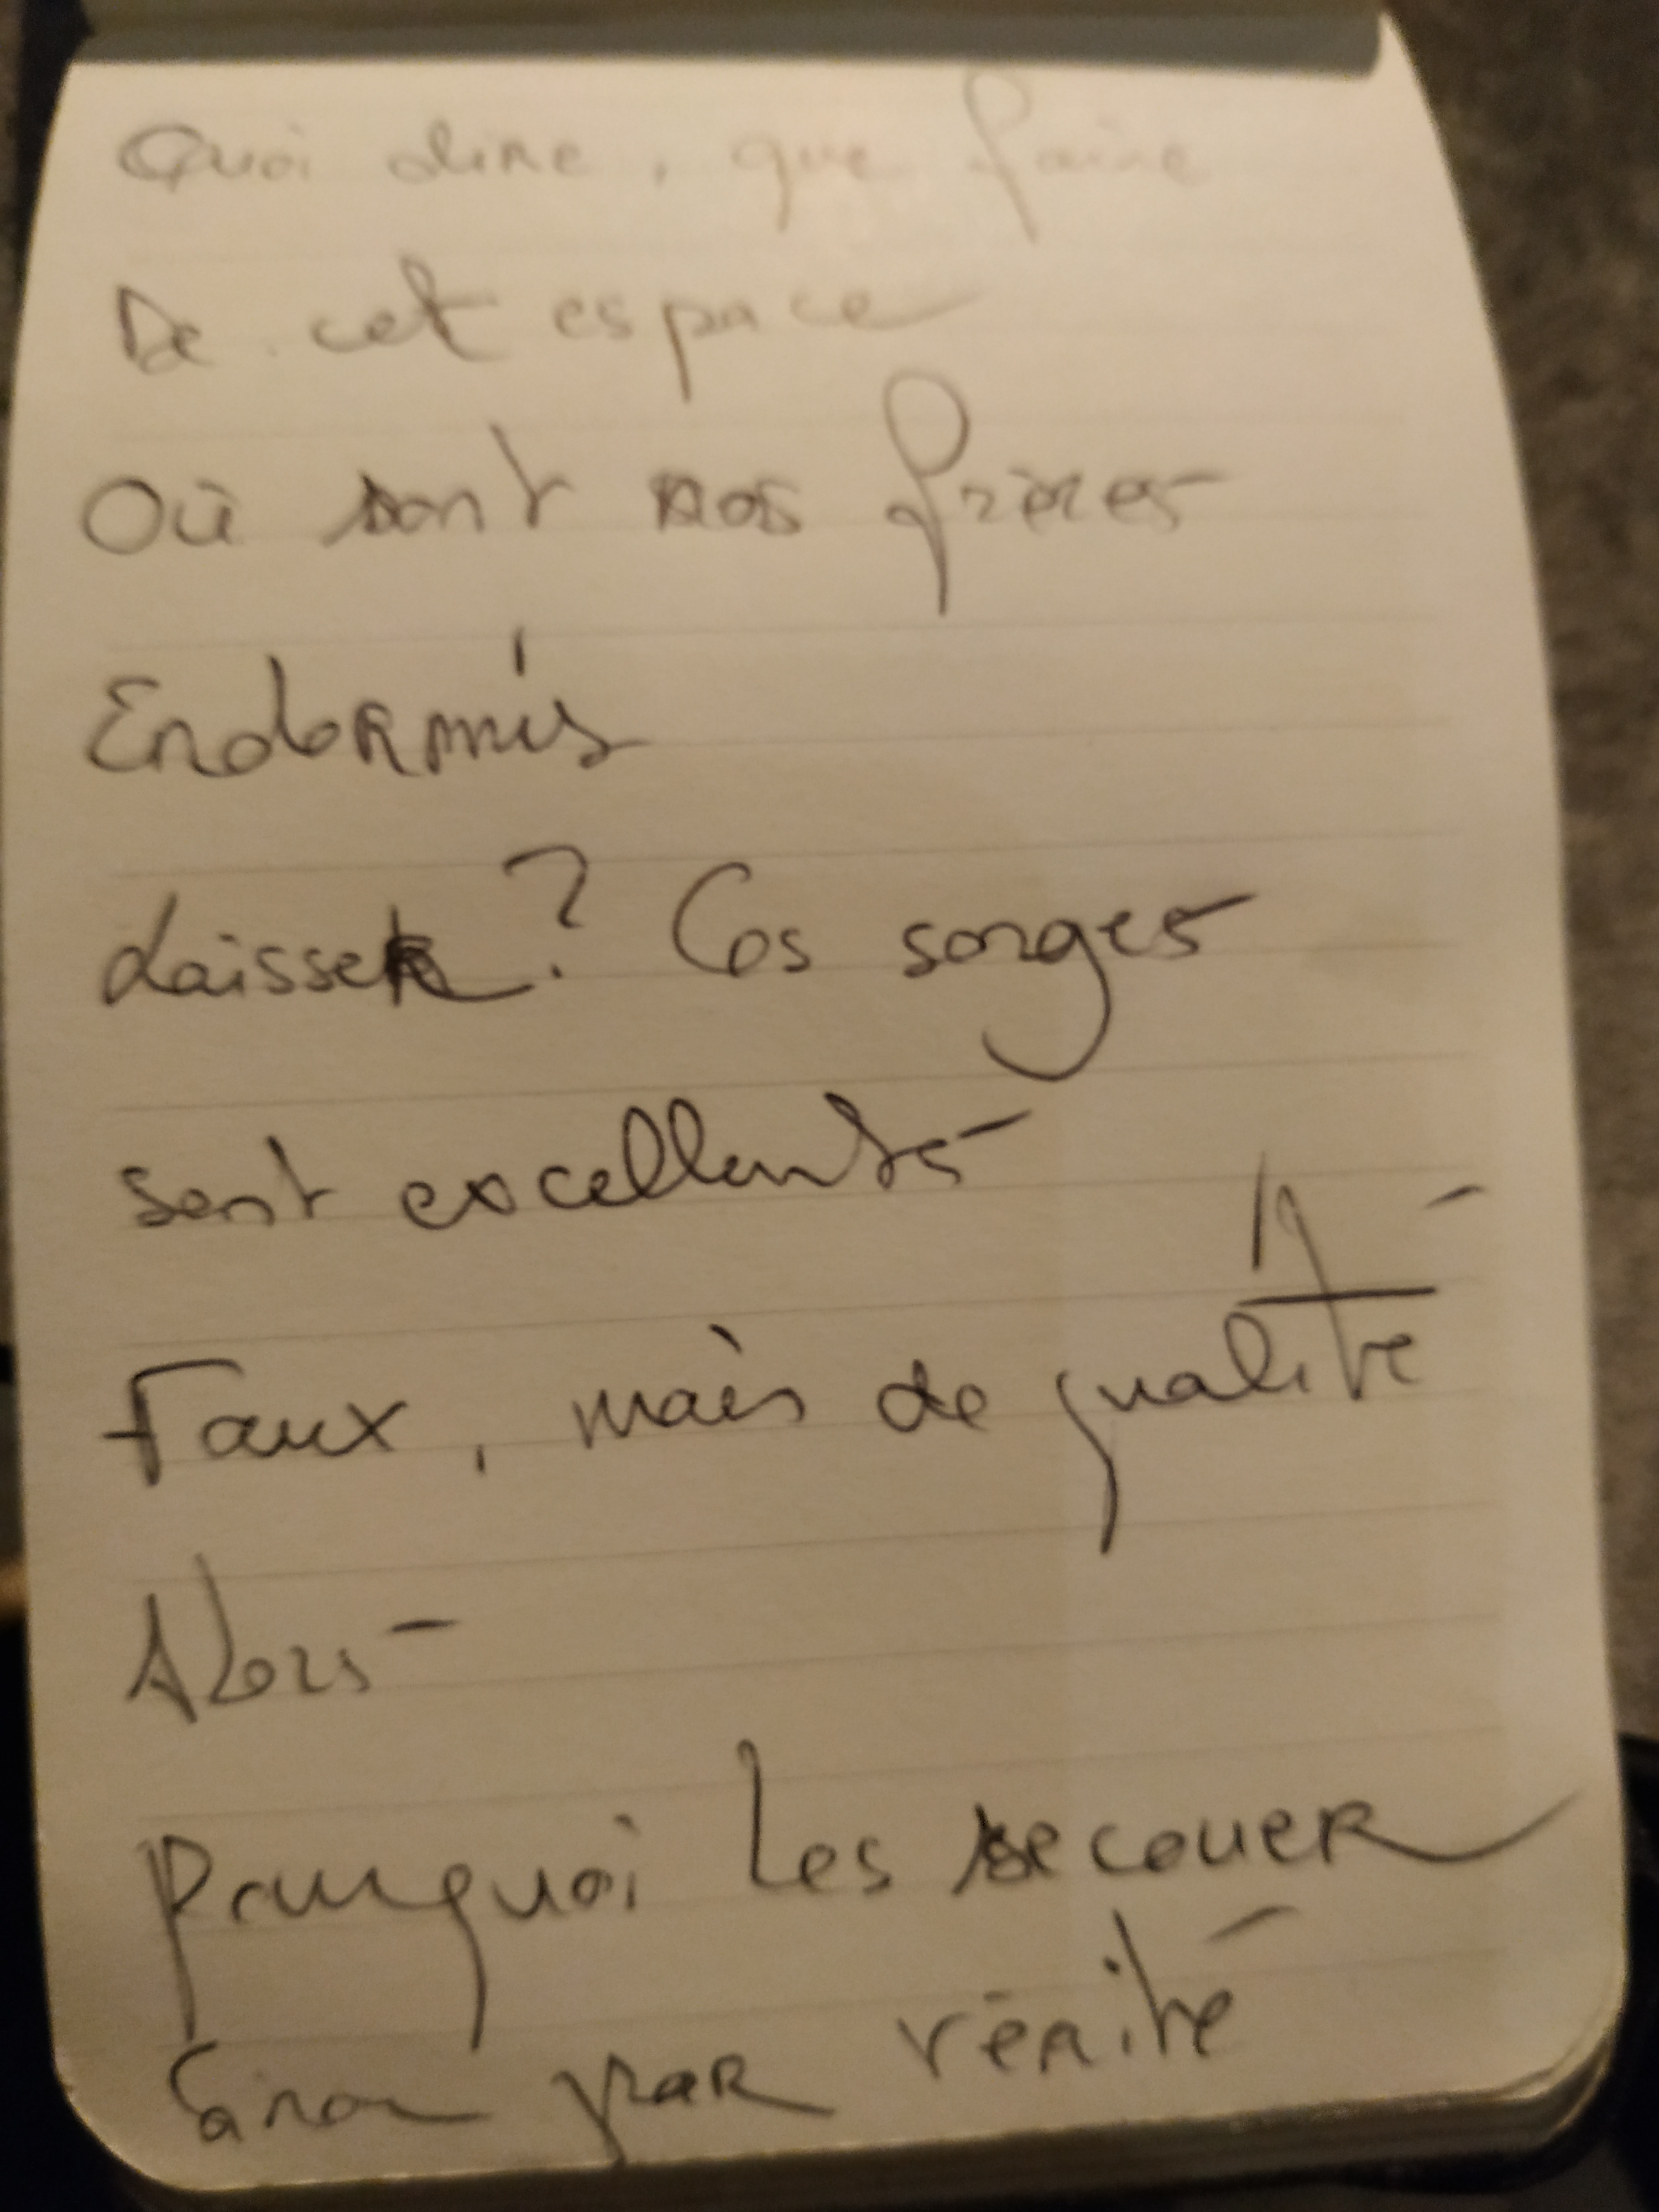 Quoi dire, que faire
De cet espace
Où sont nos frères
Endormis
Laisser? Ces songes
sont excellents
Faux, mais de qualité
Alors
Pourquoi les secouer
Sinon par vérité